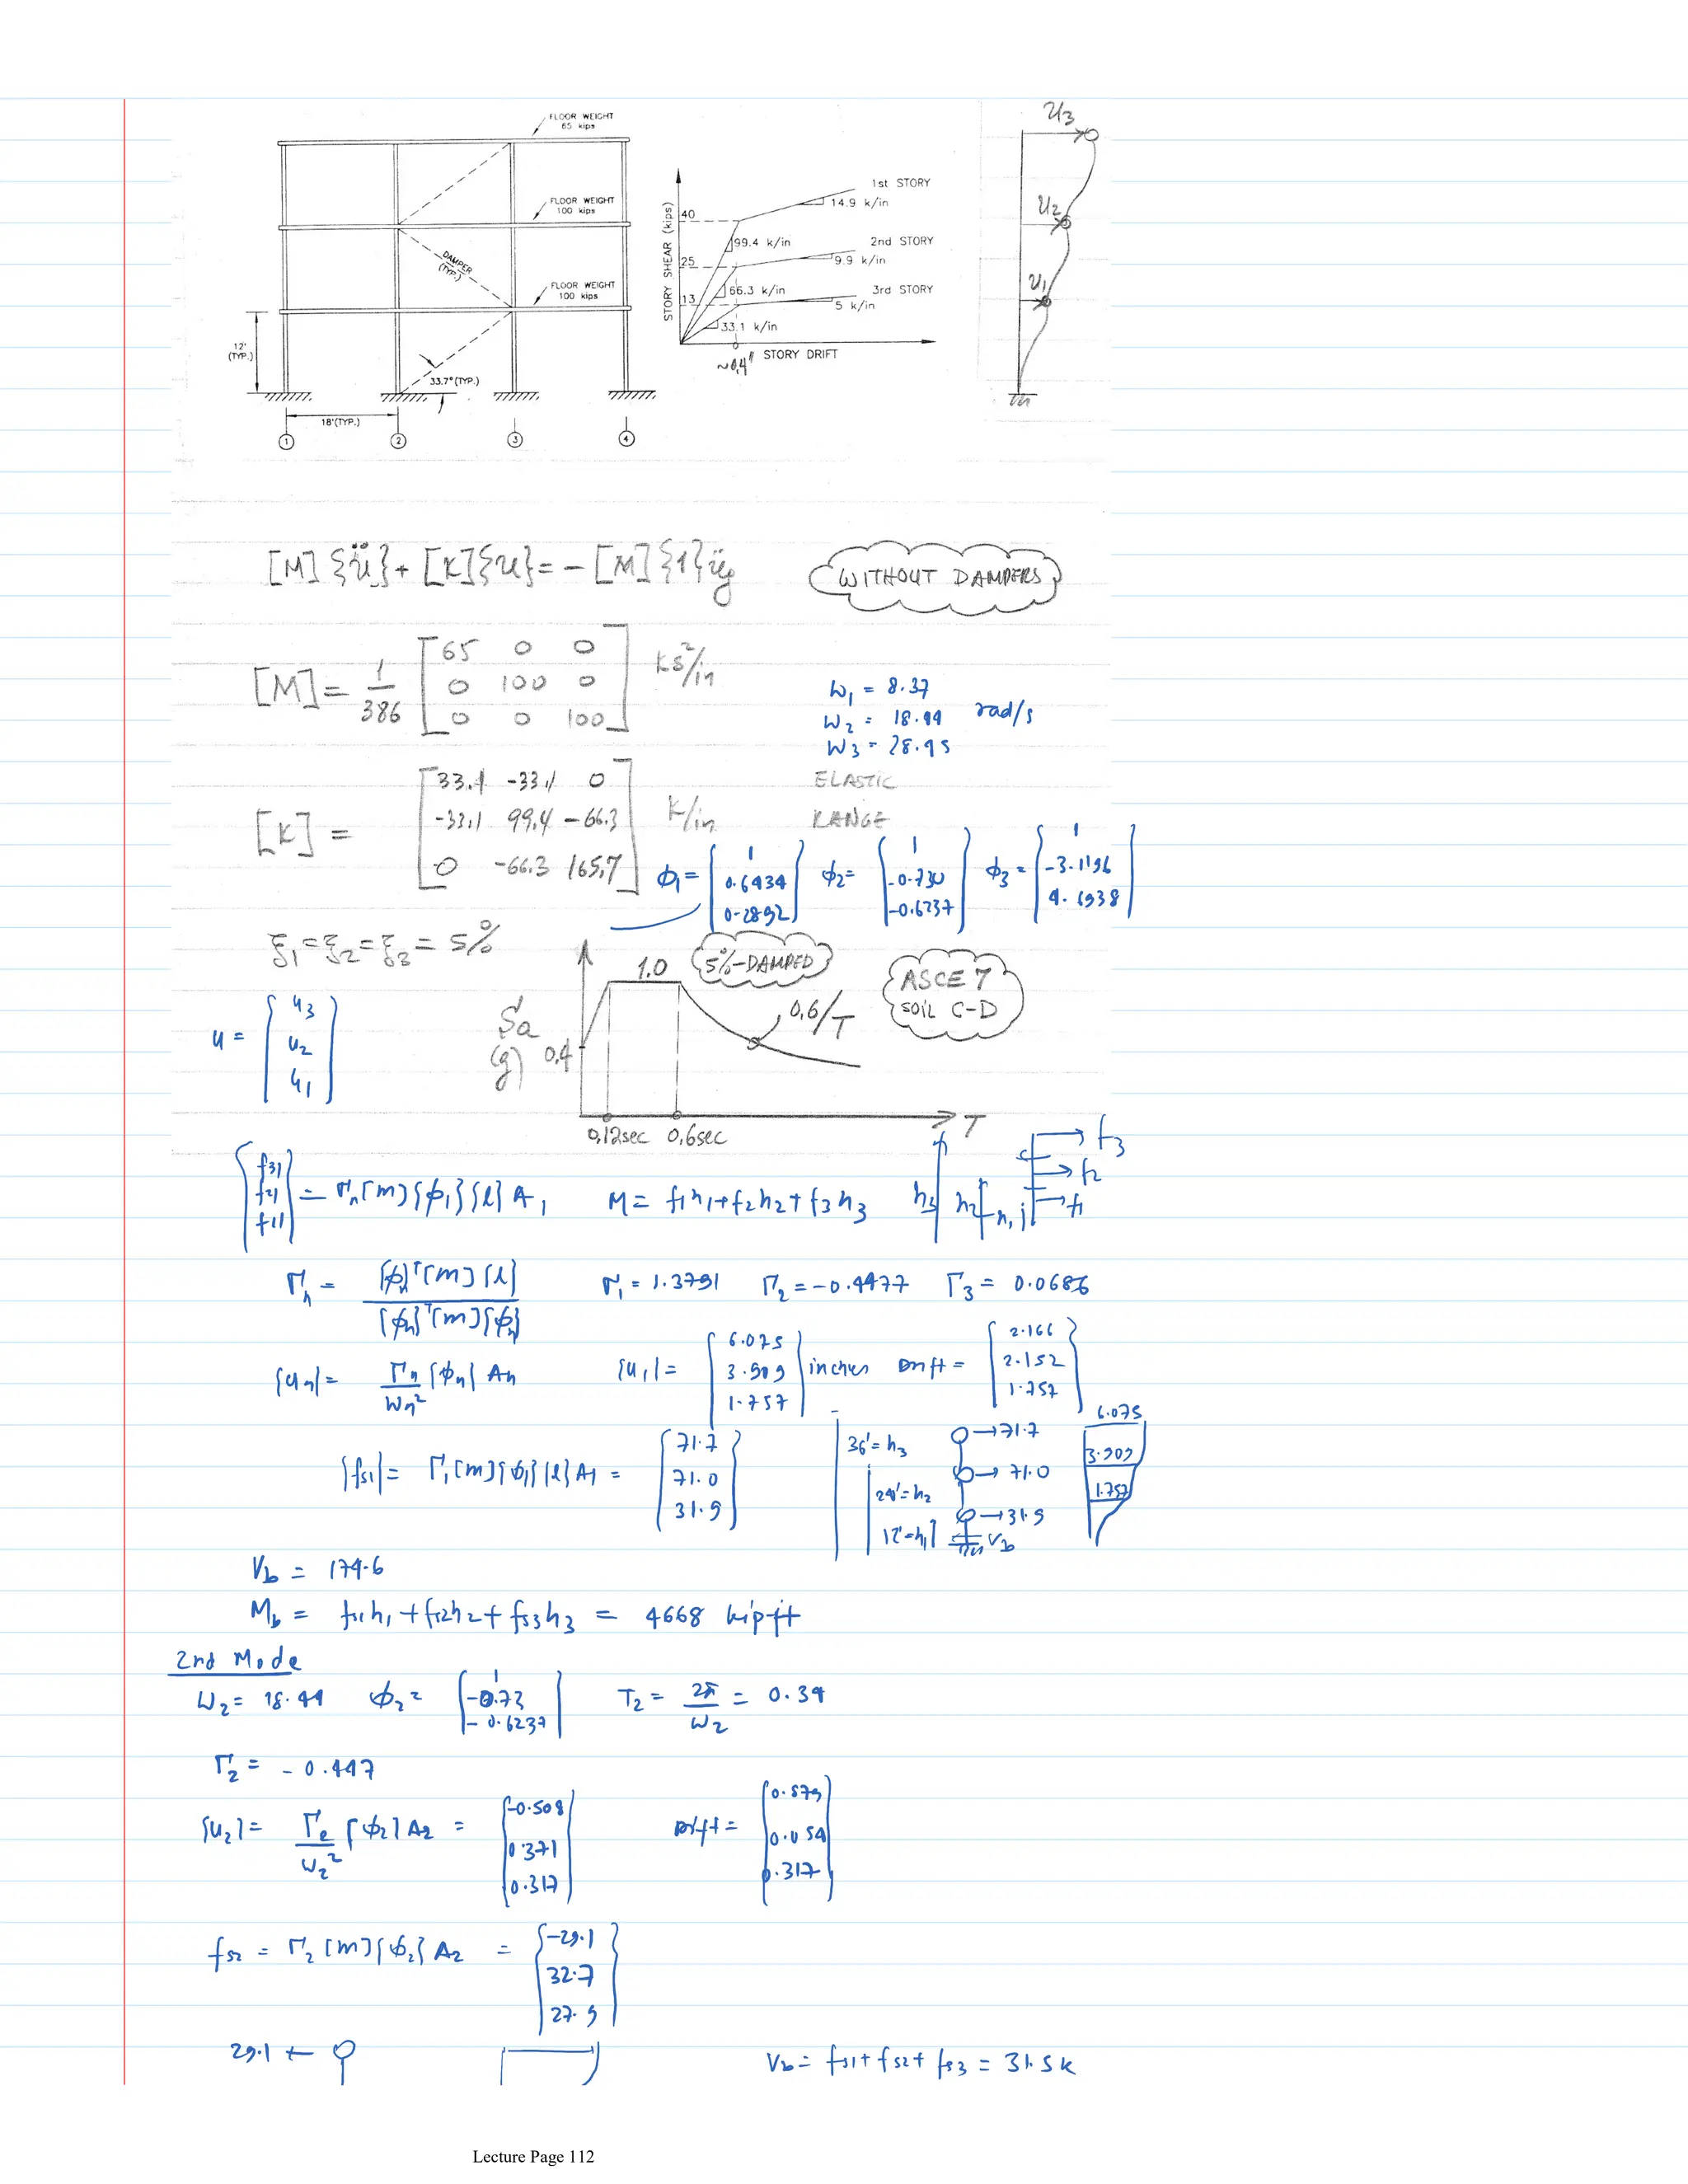 FLOOR WEIGHT
65 kips
FLOOR WEIGHT
100 kips
DAMPER
(TYP.)
FLOOR WEIGHT
100 kips
12'
(TYP.)
33.7°(TYP.)
18'(TYP.)
1 2 3 4
STORY SHEAR (kips)
1st STORY
14.9 k/in
40
99.4 k/in
2nd STORY
9.9 k/in
25
66.3 k/in
3rd STORY
5 k/in
13
33.1 k/in
~0,4" STORY DRIFT
u3
u2
u1
[M]{ü}+[K]{u}=-[M]{1}üg
WITHOUT DAMPERS
[M]= 1/386 [65 0 0
0 100 0
0 0 100] ks²/in
ω1 = 8.37
ω2 = 18.44 rad/s
ω3 = 28.45
[K] = [33.1 -33.1 0
-33.1 99.4 -66.3
0 -66.3 165.7] k/in
ELASTIC
RANGE
ϕ1= {1 0.6434 0.2892} ϕ2= {1 -0.730 -0.6237} ϕ3 = {1 -3.1196 4.6938}
ξ1=ξ2=ξ3= 5%
u = {u3 u2 u1}
Sa
(g)
0.4
1.0
5%-DAMPED
0,6/T
ASCE 7
SOIL C-D
0,12sec 0,6sec
T
{f31 f21 f11} = Γn[m]{ϕ1}{l}A1 M= f1h1+f2h2+f3h3 h3 h2 h1 f3 f2 f1
Γn = {ϕn}ᵀ[m]{l} / {ϕn}ᵀ[m]{ϕn} Γ1 = 1.3791 Γ2 = -0.4477 Γ3 = 0.0686
{un}= Γn/ωn² {ϕn} An {u1}= {6.075 3.909 1.757} inches Drift = {2.166 2.152 1.757}
{fs1}= Γ1[m]{ϕ1}{l}A1 = {71.7 71.0 31.9}
36'=h3 →71.7
24'=h2 →71.0
12'=h1 →31.9
Vb
6.075
3.909
1.757
Vb = 174.6
Mb = fs1h1+fs2h2+fs3h3 = 4668 kip-ft
2nd Mode
ω2= 18.44 ϕ2= {1 -0.73 -0.6237} T2 = 2π/ω2 = 0.34
Γ2 = -0.447
{u2}= Γ2/ω2² {ϕ2}A2 = {-0.508 0.371 0.317} Drift = {0.879 0.054 0.317}
fs2 = Γ2[m]{ϕ2}A2 = {-29.1 32.7 27.9}
29.1 ←
Vb= fs1+fs2+fs3 = 31.5k
Lecture Page 112